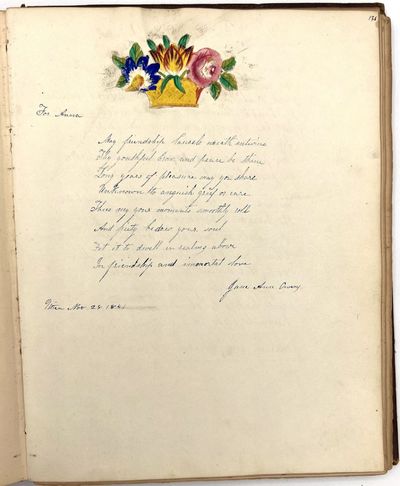 For Anna
May friendship laurels wreath entwine
Thy youthful brow and peace be thine
Long years of pleasure may you share
Unknown to anguish grief or care
Thus may your moments smoothly roll
And piety bedew your soul
Fit it to dwell in realms above
In friendship and immortal love
Jane Ann
Nov 28